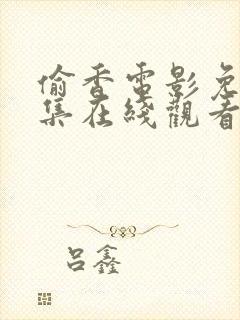 偷香電影免
集在綫觀看
吕鑫